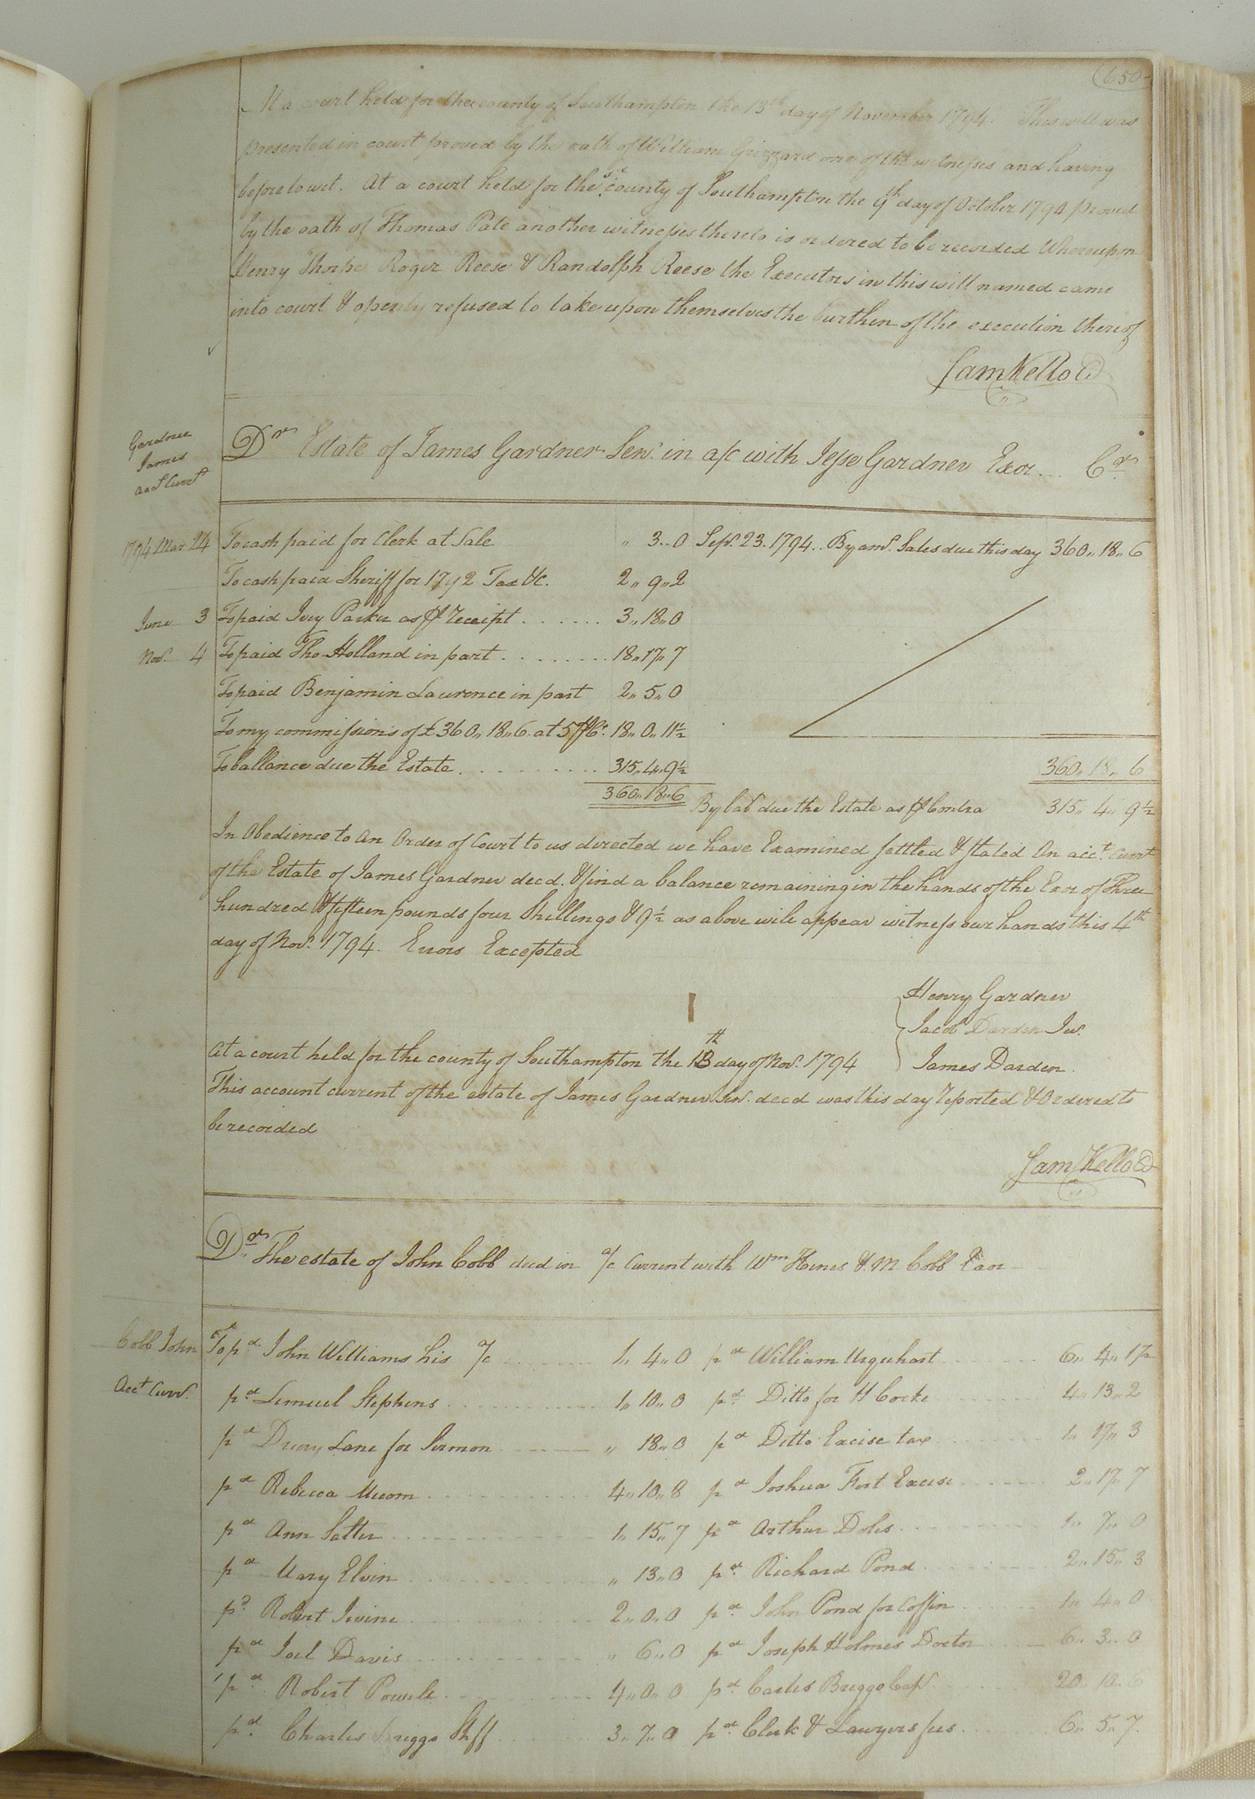 650
At a court held for the county of Southampton the 13th day of November 1794. This will was
presented in court proved by the oath of William Grizzard one of the witnesses and having
before Court. At a court held for the sd. county of Southampton the 9th day of October 1794 proved
by the oath of Thomas Pate another witnesses thereto is ordered to be recorded Whereupon
Henry Thorpe Roger Reese & Randolph Reese the Executors in this will named came
into court & openly refused to take upon themselves the burthen of the execution thereof
Sam Kello C
Gardner
James
act Currt
Dr. Estate of James Gardner Senr. in a/c with Jesse Gardner Exor. Cr.
1794 Mar 24 To cash paid for Clerk at Sale " 3..0 Sepr. 23. 1794.. By amt. Sales due this day 360,, 18,, 6
To cash paid Sheriff for 1792 Tax &c. 2,, 9,, 2
June 3 To paid Ivy Parker as pr receipt ...... 3,, 18,, 0
Novr. 4 To paid Tho Holland in part ........ 18,, 17,, 7
To paid Benjamin Laurence in part 2,, 5,, 0
To my commissions of £360,, 18,, 6 at 5 pCt. 18,, 0,, 11½
To ballance due the Estate .......... 315,, 4,, 9½ 360,, 18,, 6
360,, 18,, 6 By bal due the Estate as pr Contra 315,, 4,, 9½
In Obedience to An Order of Court to us directed we have Examined settled & stated An acct. Currt
of the Estate of James Gardner decd. & find a balance remaining in the hands of the Exor of Three
hundred & fifteen pounds four Shillings & 9½ as above will appear witness our hands this 4th
day of Novr. 1794. Errors Excepted
Henry Gardner
Jacob Darden Jur.
James Darden
At a court held for the county of Southampton the 13th day of Novr. 1794
This account current of the estate of James Gardner Senr. decd was this day reported & Ordered to
be recorded
Sam Kello C
Dr. The estate of John Cobb decd in a/c Current with Wm Hines & M Cobb
Cobb John To pd John Williams his a/c 1,, 4,, 0 pd William Urquhart 6,, 4,, 1½
Acct Currt. pd Lemuel Stephens 1,, 10,, 0 pd Ditto for H Cocke 4,, 13,, 2
pd Drury Lane for Sermon ,, 18,, 0 pd Ditto Excise tax 1,, 17,, 3
pd Rebecca 4,, 10,, 8 pd Joshua Fort Excise 2,, 17,, 7
pd Ann Salter 1,, 15,, 7 pd Arthur Doles 1,, 7,, 0
pd Mary Elvin ,, 13,, 0 pd Richard Pond 2,, 15,, 3
pd Robert Irvine 2,, 0,, 0 pd John Pond for Coffin 1,, 4,, 0
pd Joel Davis ,, 6,, 0 pd Joseph Holmes Doctor 6,, 3,, 0
pd Robert Powell 4,, 0,, 0 pd Carles Briggs 20,, 10,, 6
pd Charles Briggs Shff 3,, 7,, 0 pd Clerk & Lawyers fees 6,, 5,, 7